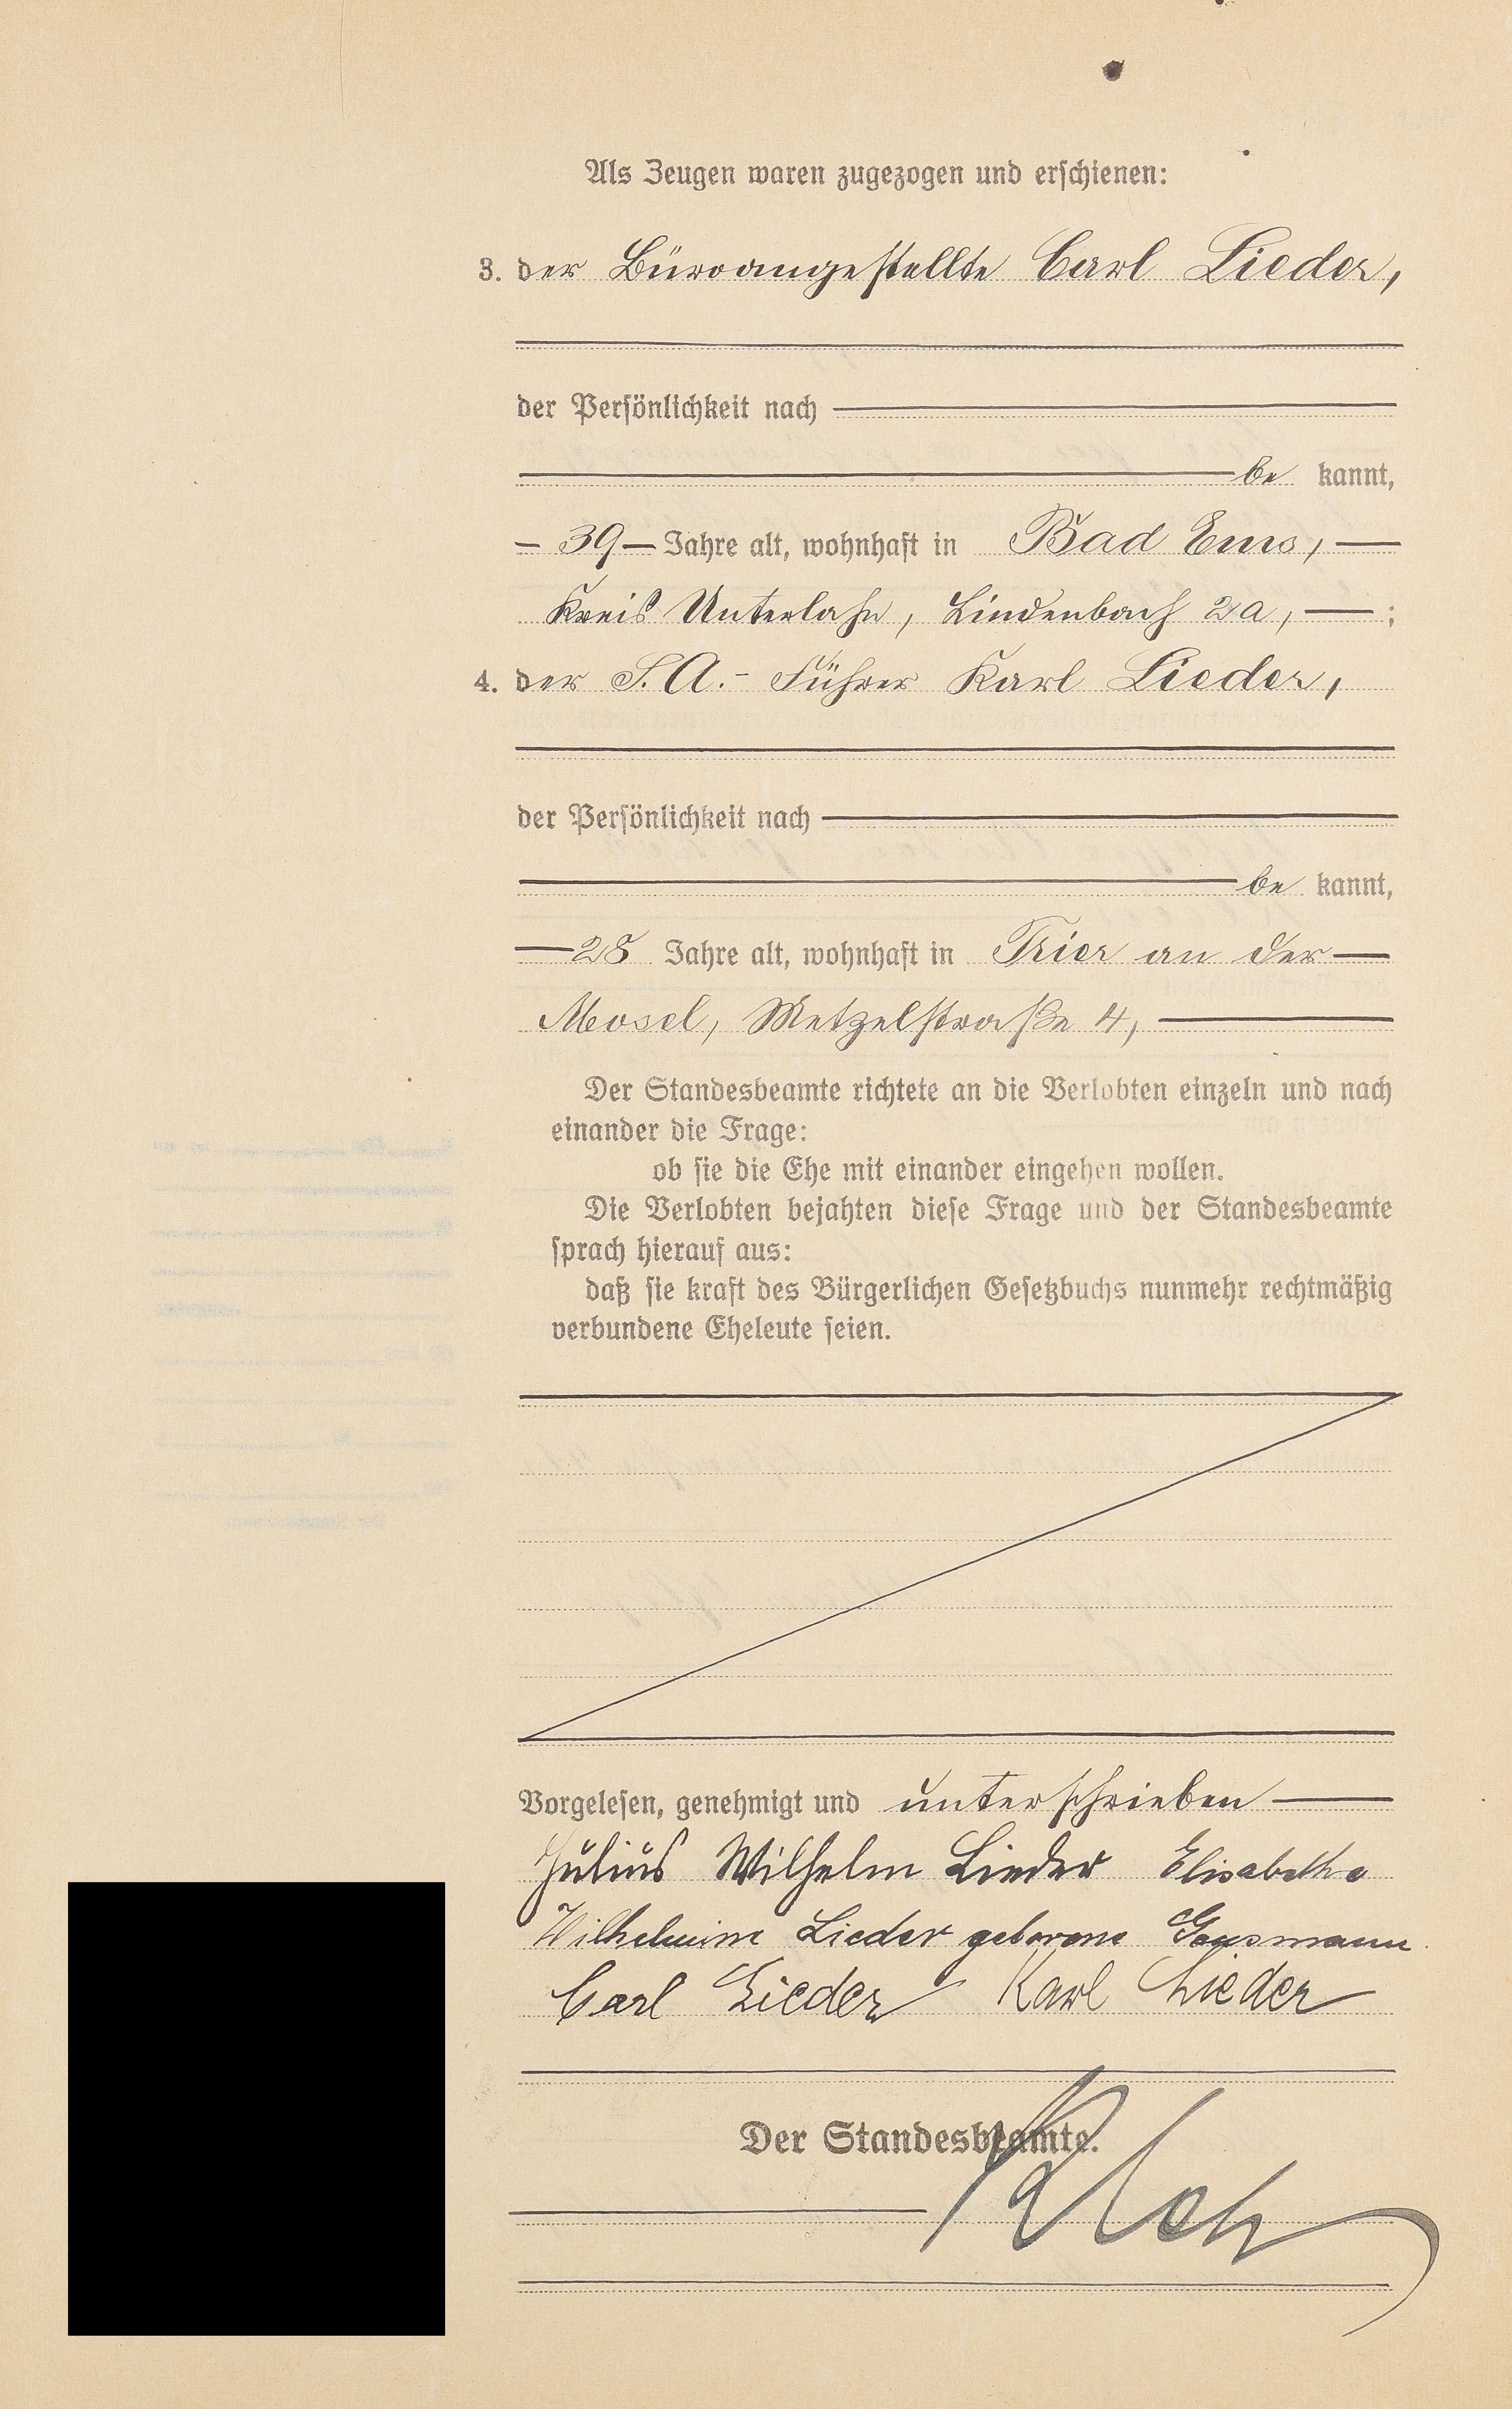 Als Zeugen waren zugezogen und erschienen:
3. der Büroangestellte Carl Lieder,
der Persönlichkeit nach
be kannt,
– 39 – Jahre alt, wohnhaft in Bad Ems, —
Kreis Unterlahn, Lindenbach 2a, — ;
4. der S.A.- Führer Karl Lieder,
der Persönlichkeit nach
be kannt,
— 28 Jahre alt, wohnhaft in Trier an der —
Mosel, Metzelstraße 4, —
Der Standesbeamte richtete an die Verlobten einzeln und nach
einander die Frage:
ob sie die Ehe mit einander eingehen wollen.
Die Verlobten bejahten diese Frage und der Standesbeamte
sprach hierauf aus:
daß sie kraft des Bürgerlichen Gesetzbuchs nunmehr rechtmäßig
verbundene Eheleute seien.
Vorgelesen, genehmigt und unterschrieben —
Julius Wilhelm Lieder Elisabetha
Wilhelmine Lieder geborene
Carl Lieder Karl Lieder
Der Standesbeamte.